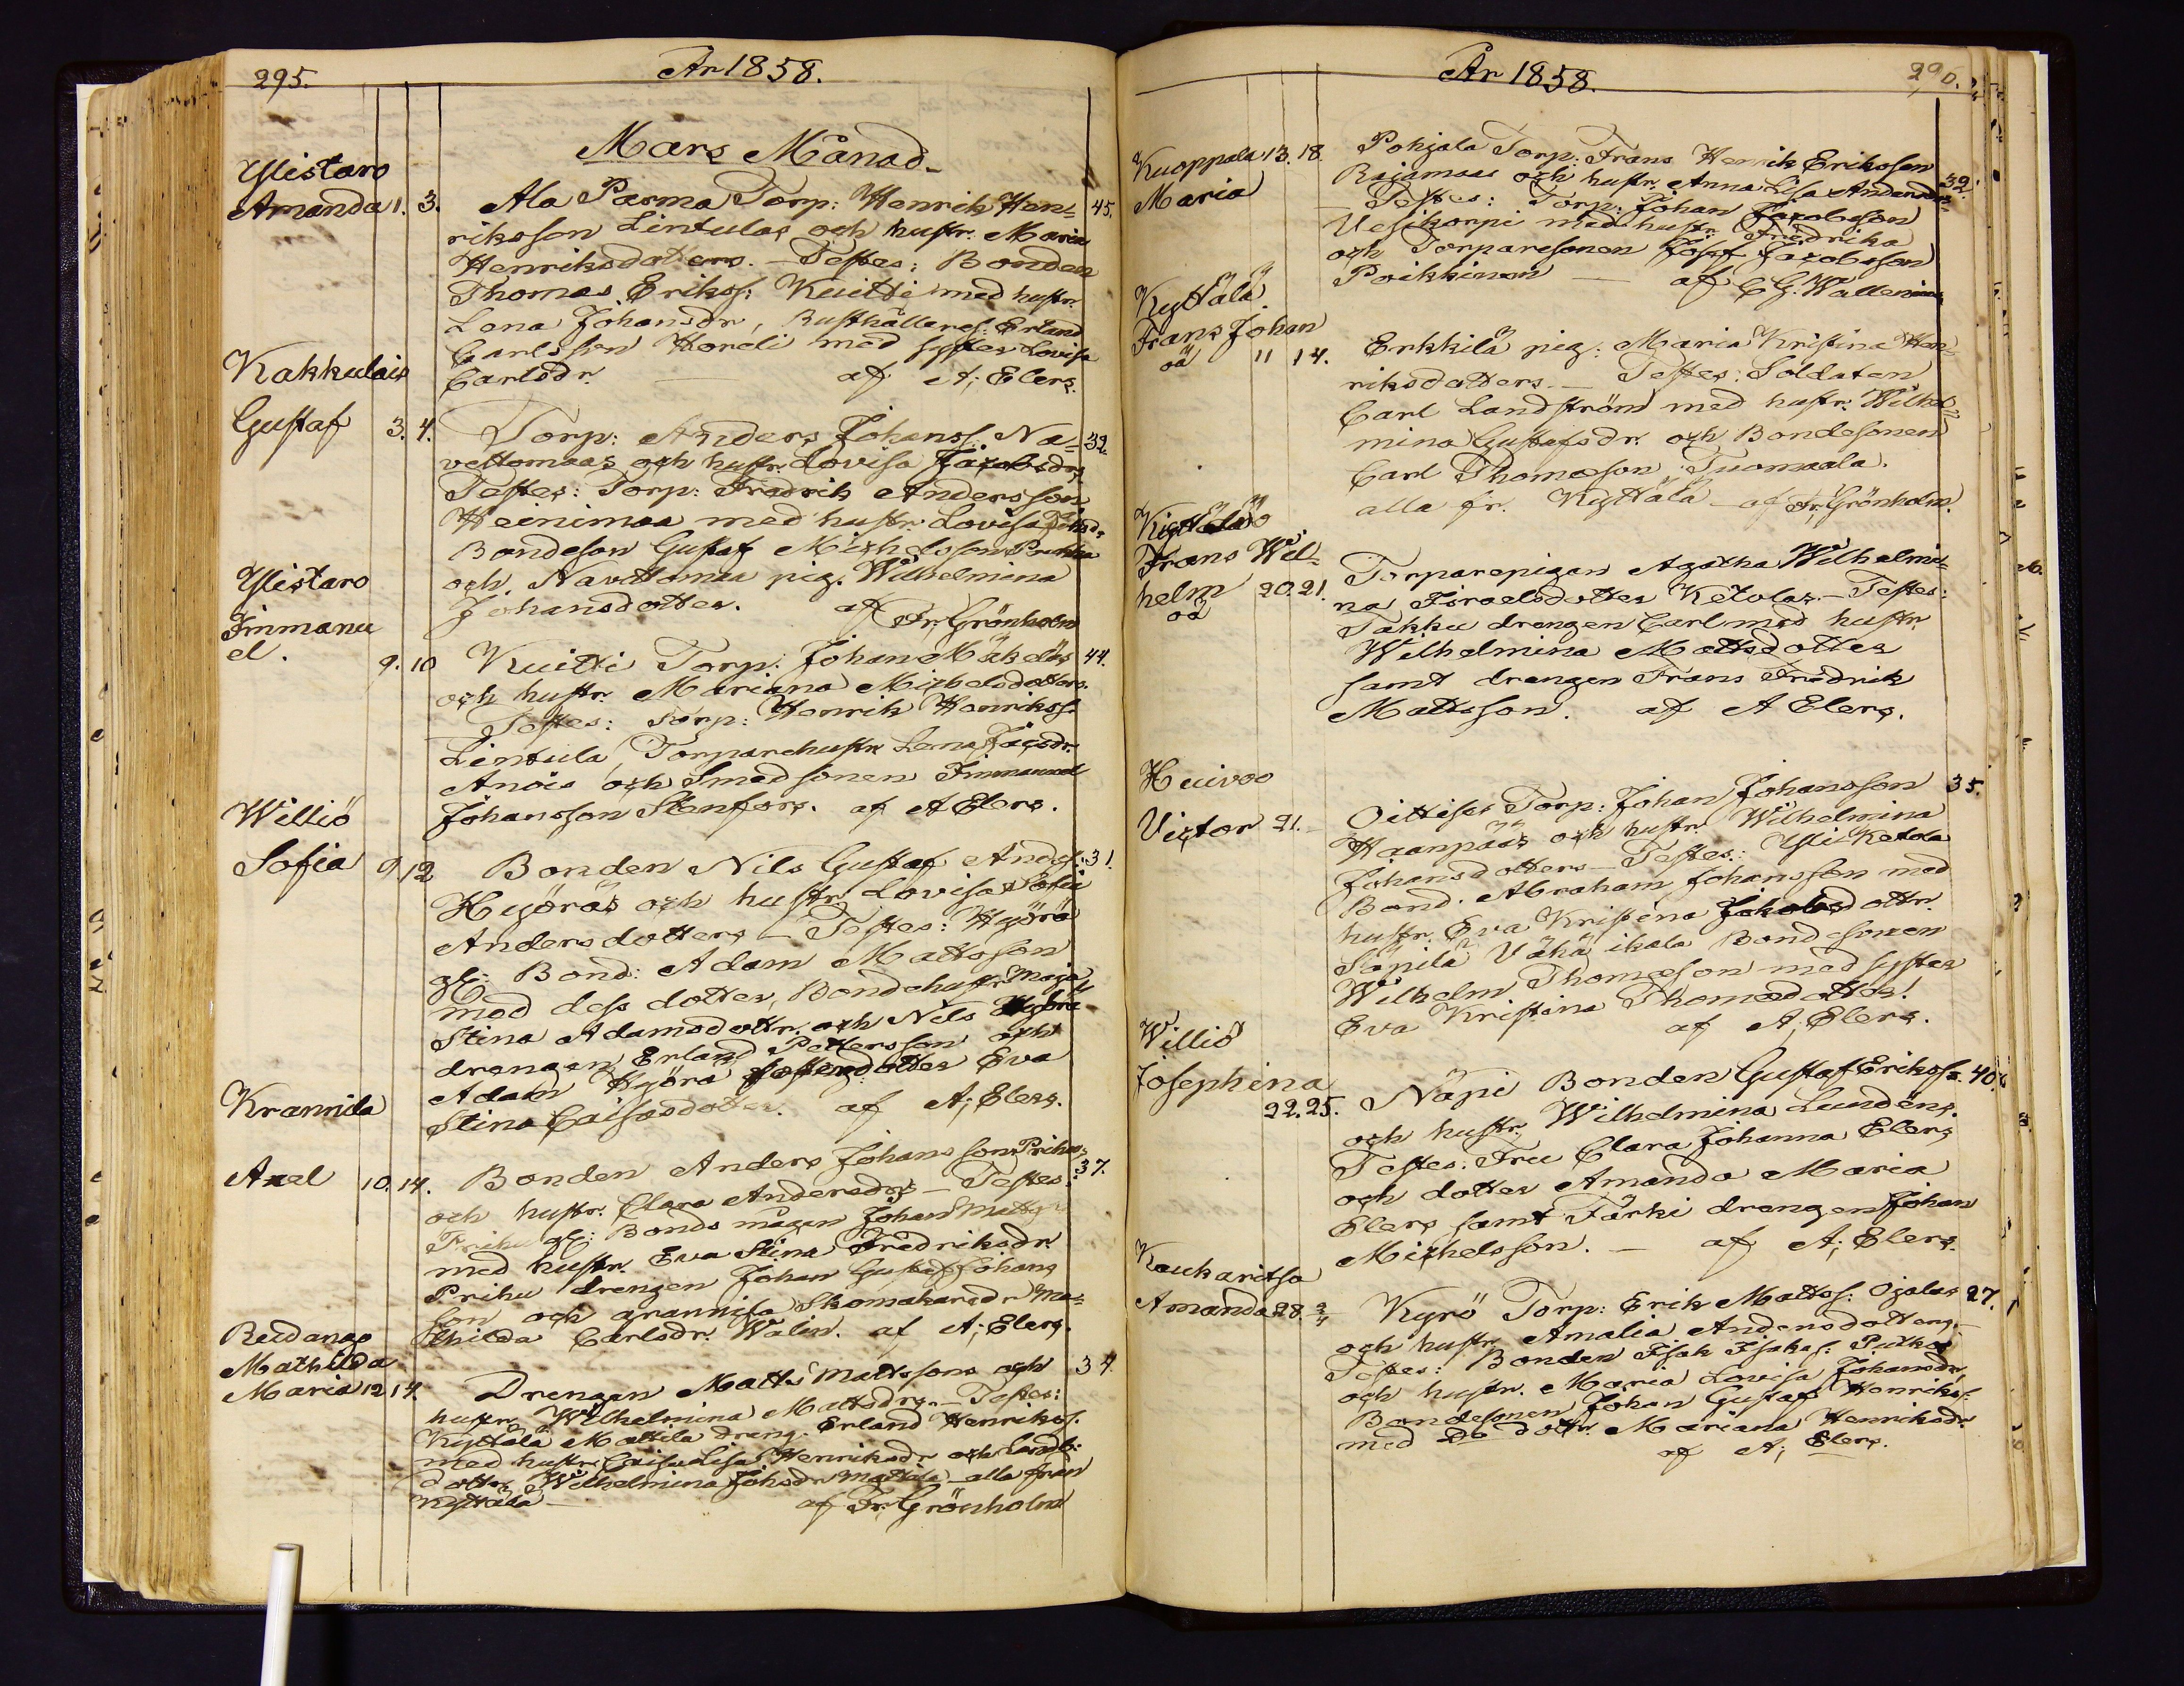 295.
År 1858.
Mars Månad.
Ylistaro
Amanda 1. 3. Ala Parma Torp: Henrik Hen= 45.
riksson Lintulas och hustr. Maria
Henriksdotters. - Testes: Bonden
Thomas Erikss. Kuitti med hustr.
Lena Johansdr, Rusthållares. Erland
Carlsson Hordi med syster Lovisa
Carlsdr. af A; Elers.
Kakkulais
Gustaf 3. 4. Torp: Anders Johanss. Na= 32.
vettomaas och hustr. Lovisa Jacobsdrs
Testes: Torp: Fredrik Andersson
Heinimaa med hustr. Lovisa
Bondeson Gustaf Michelsson
och Navettomaa pig. Wilhelmina
Johansdotter. af Fr. Grönholm
Ylistaro
Immanu
el. 9. 10 Kuitti Torp: Johan Mäkeläs 44.
och hustr. Mariana Michelsdotters.
Testes: Torp: Henrik Henrikss.
Lintula, Torparehustr. Lena Jacsdr.
Anois och Smedsonen Immanuel
Johansson Stenfors. af A Elers.
Williö
Sofia 9 12 Bonden Nils Gustaf Anderss: 31.
Hyöräs och hustr. Lovisa Sofia
Andersdotters - Testes: Hyörä
gl: Bond: Adam Mattsson
med dess dotter, Bondehustr. Maja
Stina Adamsdottr. och Nils Hyörä
drengen Erland Pettersson och
Adam Hyörä dotter Eva
Stina Caisasdotter. af A; Elers.
Krannila
Axel 10. 14. Bonden Anders Johansson Prihus 37.
och hustr. Clara Andersdrs - Testes:
Prihu gl: Bonds mågen Johan Mattss
med hustr. Eva Stina Fredriksdr.
Prihu drengen Johan Gustaf Johans
son och grannisa Skomakaredr Ma=
thilda Carlsdr. Walin. af A; Elers.
Reedango
Mathilda
Maria 12 14. Drengen Matts Mattssons och 34.
hustr. Wilhelmina Mattsdrs. - Testes:
Kyttälä Mattila dreng. Erland Henrikss.
med hustr. Caisa Lisa Henriksdr och
dotter Wilhelmina Johsdr Mattila - alla från
Kyttälä - af Fr. Grönholm
År 1858.
296.
Kuoppala 13. 18. Pohjala Torp: Frans Henrik Eriksson 32.
Maria Rajamaas och hustr. Anna Lisa Andersdrs
- Testes: Torp: Johan Jacobsson
Vesikorpi med hustr. Fredrika
och Torparesonen Josef Jacobsson
Poikkinen - af C G. Wallenius
Kyttälä.
Frans Johan
oä 11 14. Erkkilä pig: Maria Kristina Hen=
riksdotters. - Testes: Soldaten
Carl Landström med hustr. Wilhel=
mina Gustafsdr. och Bondesonen
Carl Thomasson Tuomaala.
alla fr. Kyttälä - af Fr. Grönholm.
Kyttälä
Frans Wil=
helm 20. 21. Torparepigan Agatha Wilhelmi=
oä na Israelsdotter Ketolas. - Testes:
Takku drengen Carl med hustr.
Wilhelmina Mattsdotter
samt drengen Frans Fredrik
Mattsson. af A Elers.
Huivoo
Victor 21. - Oittisis Torp: Johan Johansson 35.
Haanpääs och hustr. Wilhelmina
Johansdotters - Testes: Yli Ketola
Bond. Abraham Johansson med
hustr. Eva Kristina Jakobsdottr.
Säpilä Vähä ikala Bondesonen
Wilhelm Thomasson med syster
Eva Kristina Thomasdotter.
af A; Elers.
Williö
Josephina
22. 25. Näpi Bonden Gustaf Erikss. 40.
och hustr. Wilhelmina Lundens.
Testes: Fru Clara Johanna Elers
och dotter Amanda Maria
Elers samt Färki drengen Johan
Michelsson. - af A; Elers.
Kaukaritsa
Amanda 28. 2/4 Kyrö Torp: Erik Mattss: Ojalas 27.
och hustr. Amalia Andersdotters. -
Testes: Bonden Isak Isakss: Putkos
och hustr. Maria Lovisa Johansdr,
Bondesonen Johan Gustaf Henrikss.
med Do dottr. Mariana Henriksdr.
af A; Elers.